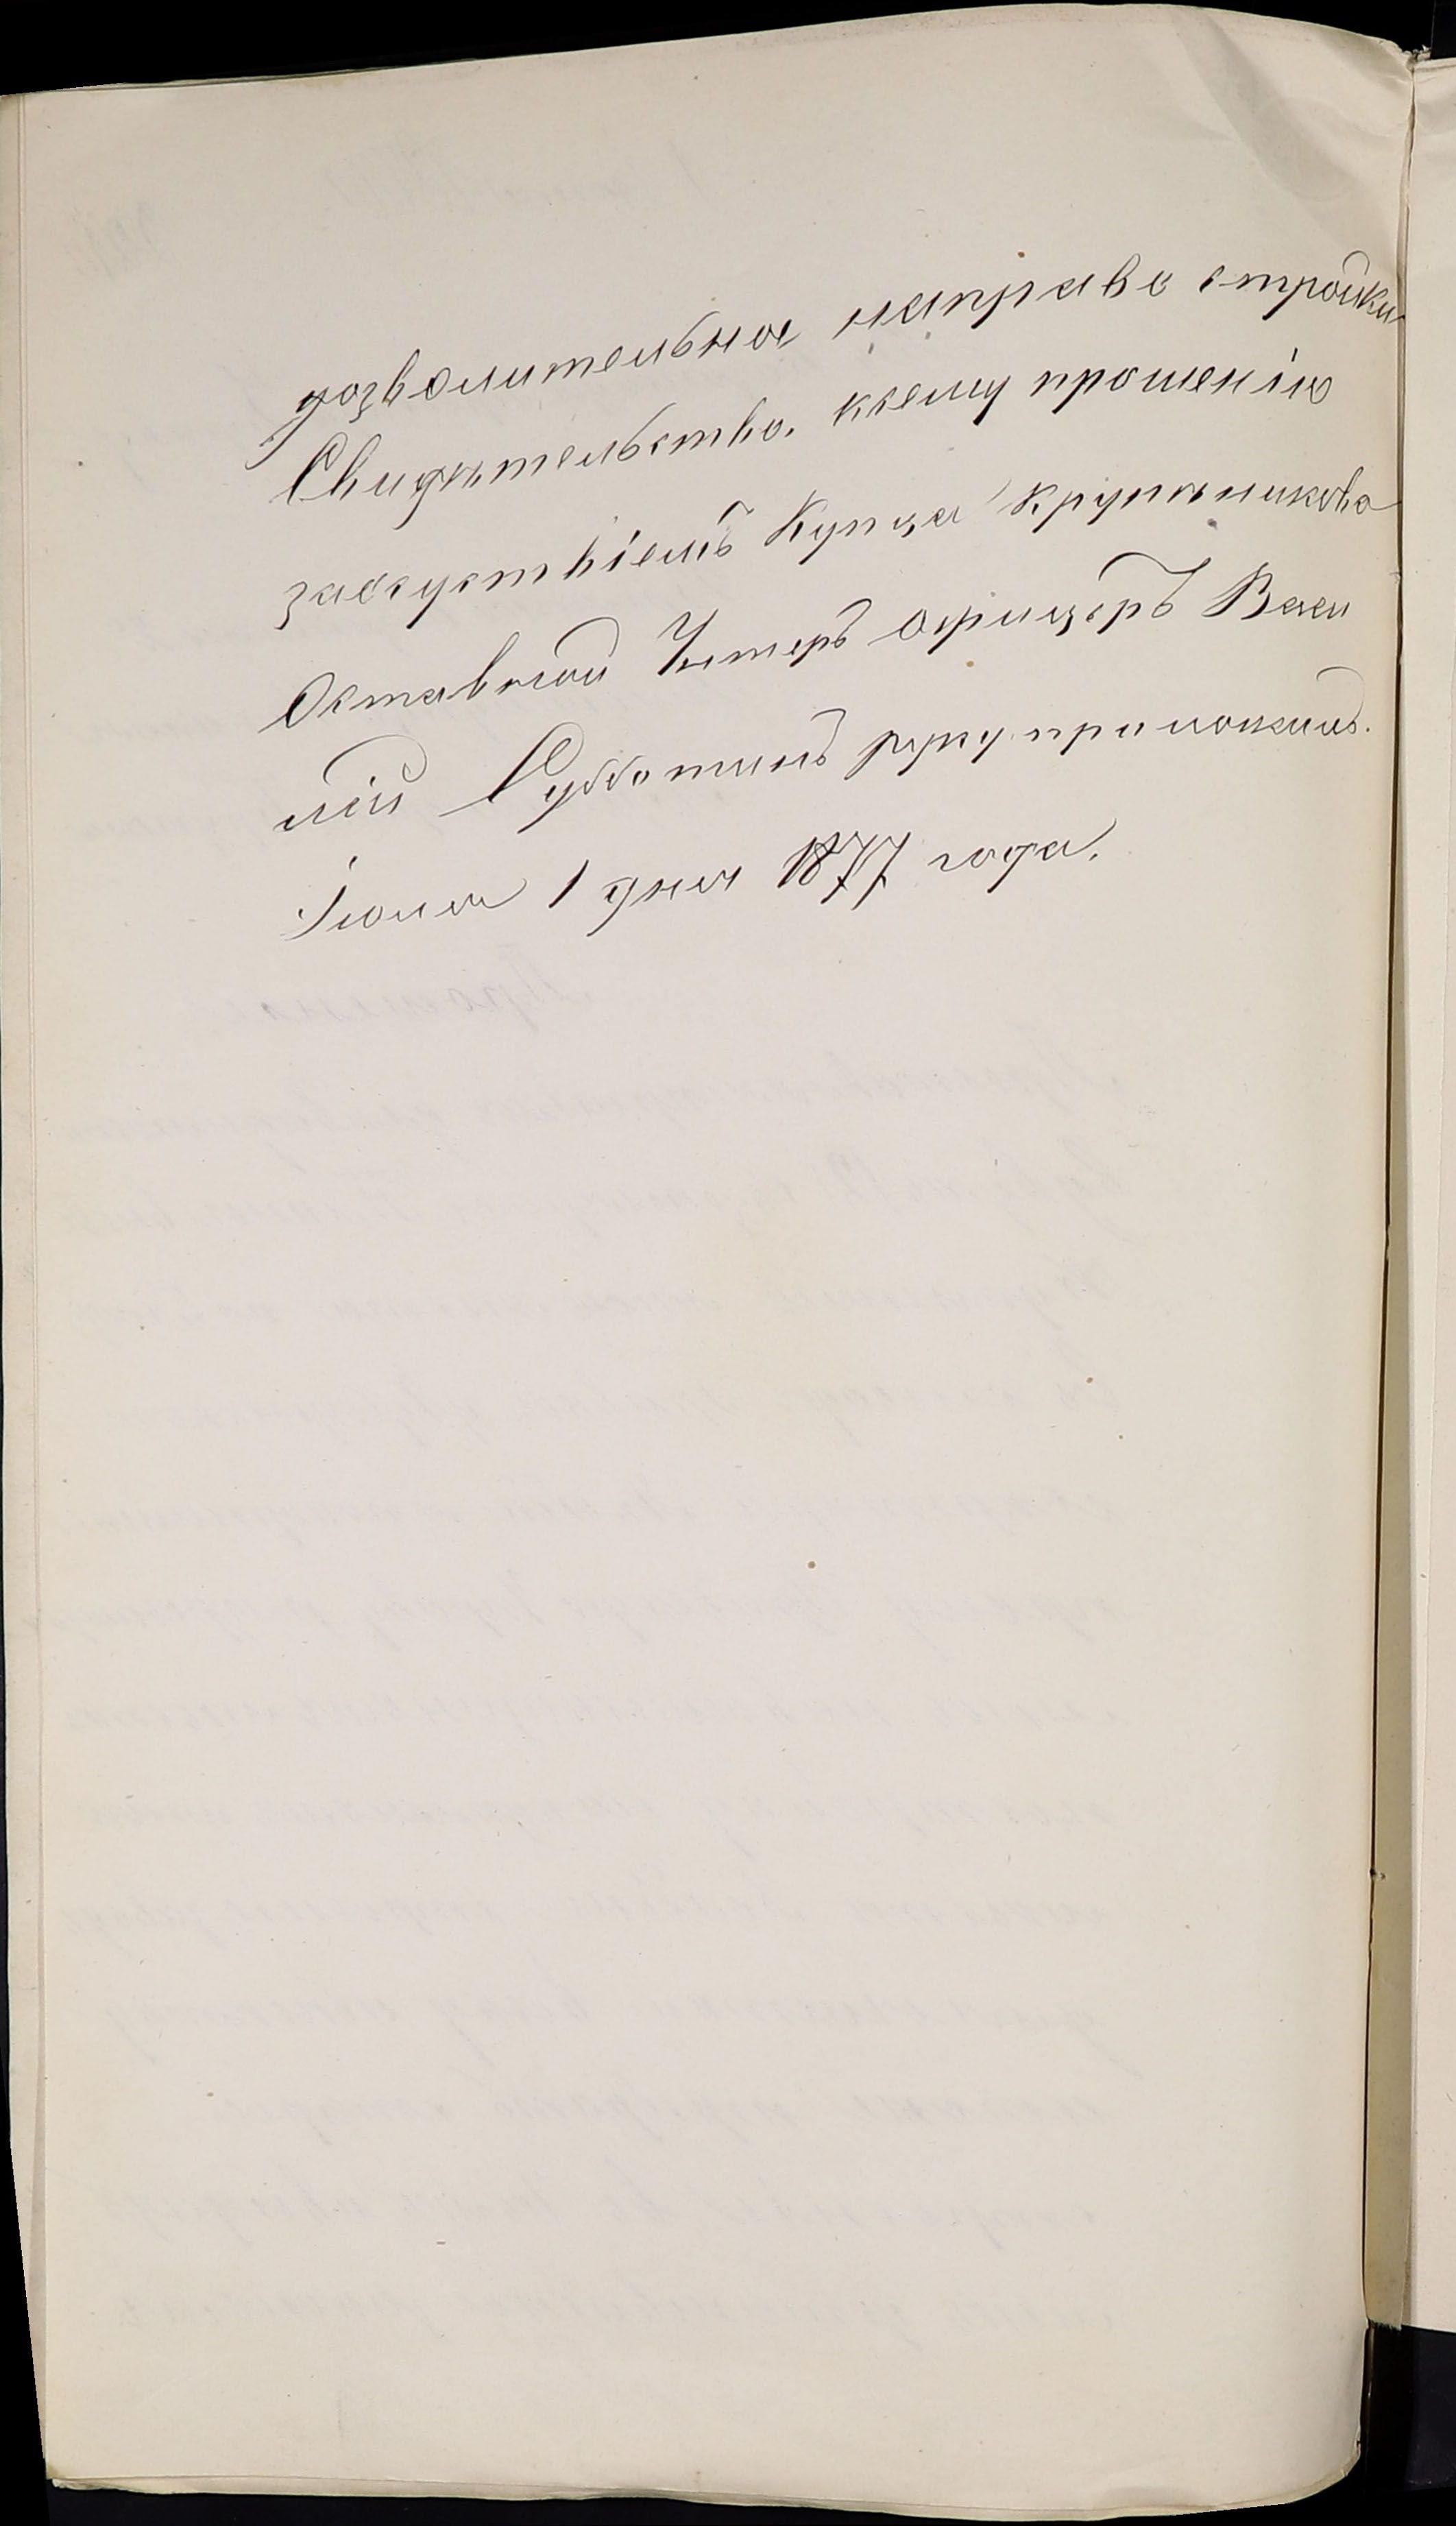 дозволительное направо стройки
Свидѣтельство. ксему прошенію
заотсуствіемъ Купца Крупѣникова
Оставной Унтеръ офицеръ Васи
лій Субботинъ руку приложилъ.
Іюля 1 дня 1877 года.